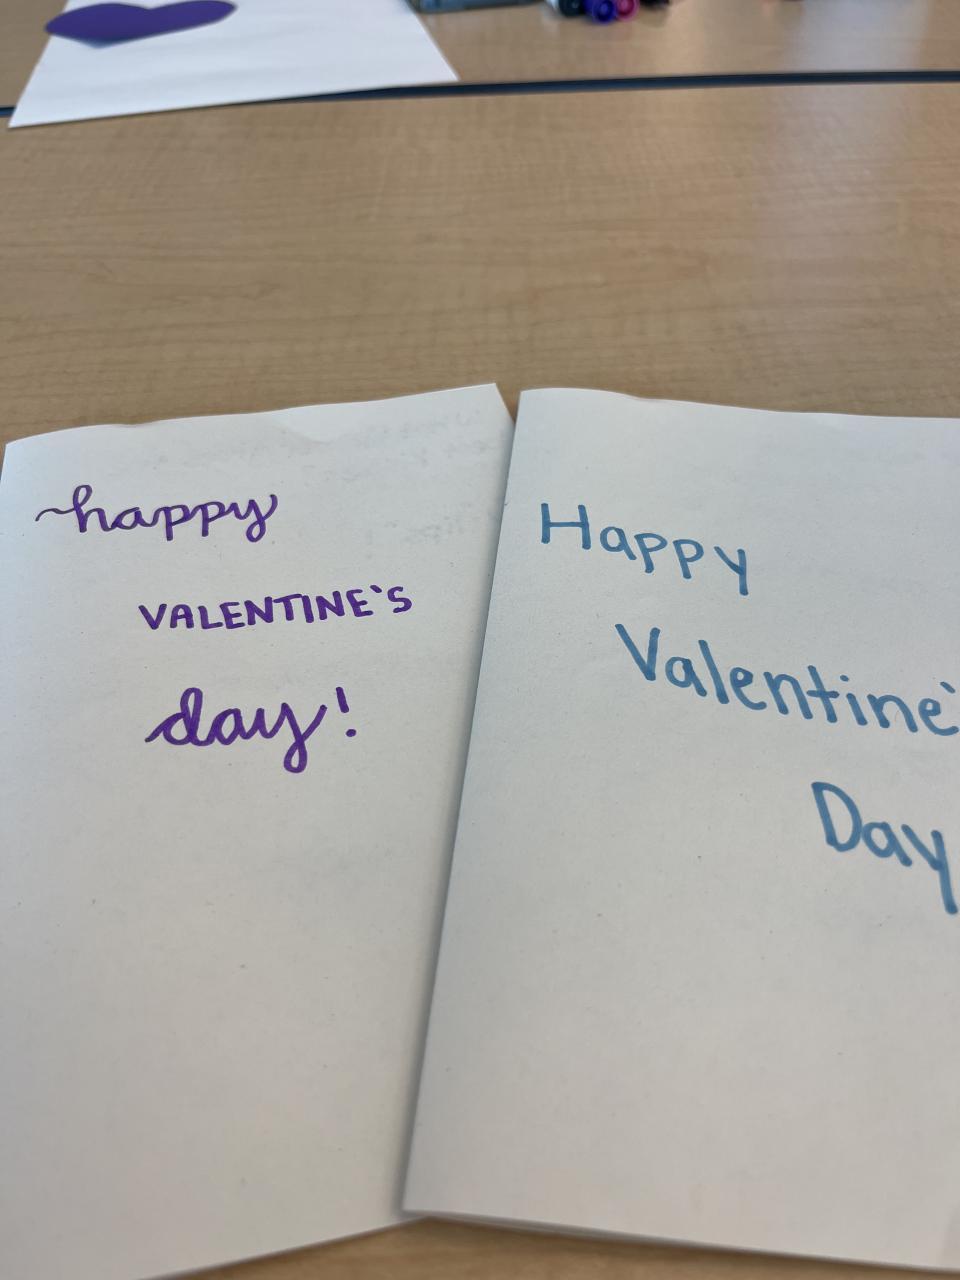 happy
VALENTINE`S
day!
Happy
Valentine`
Day